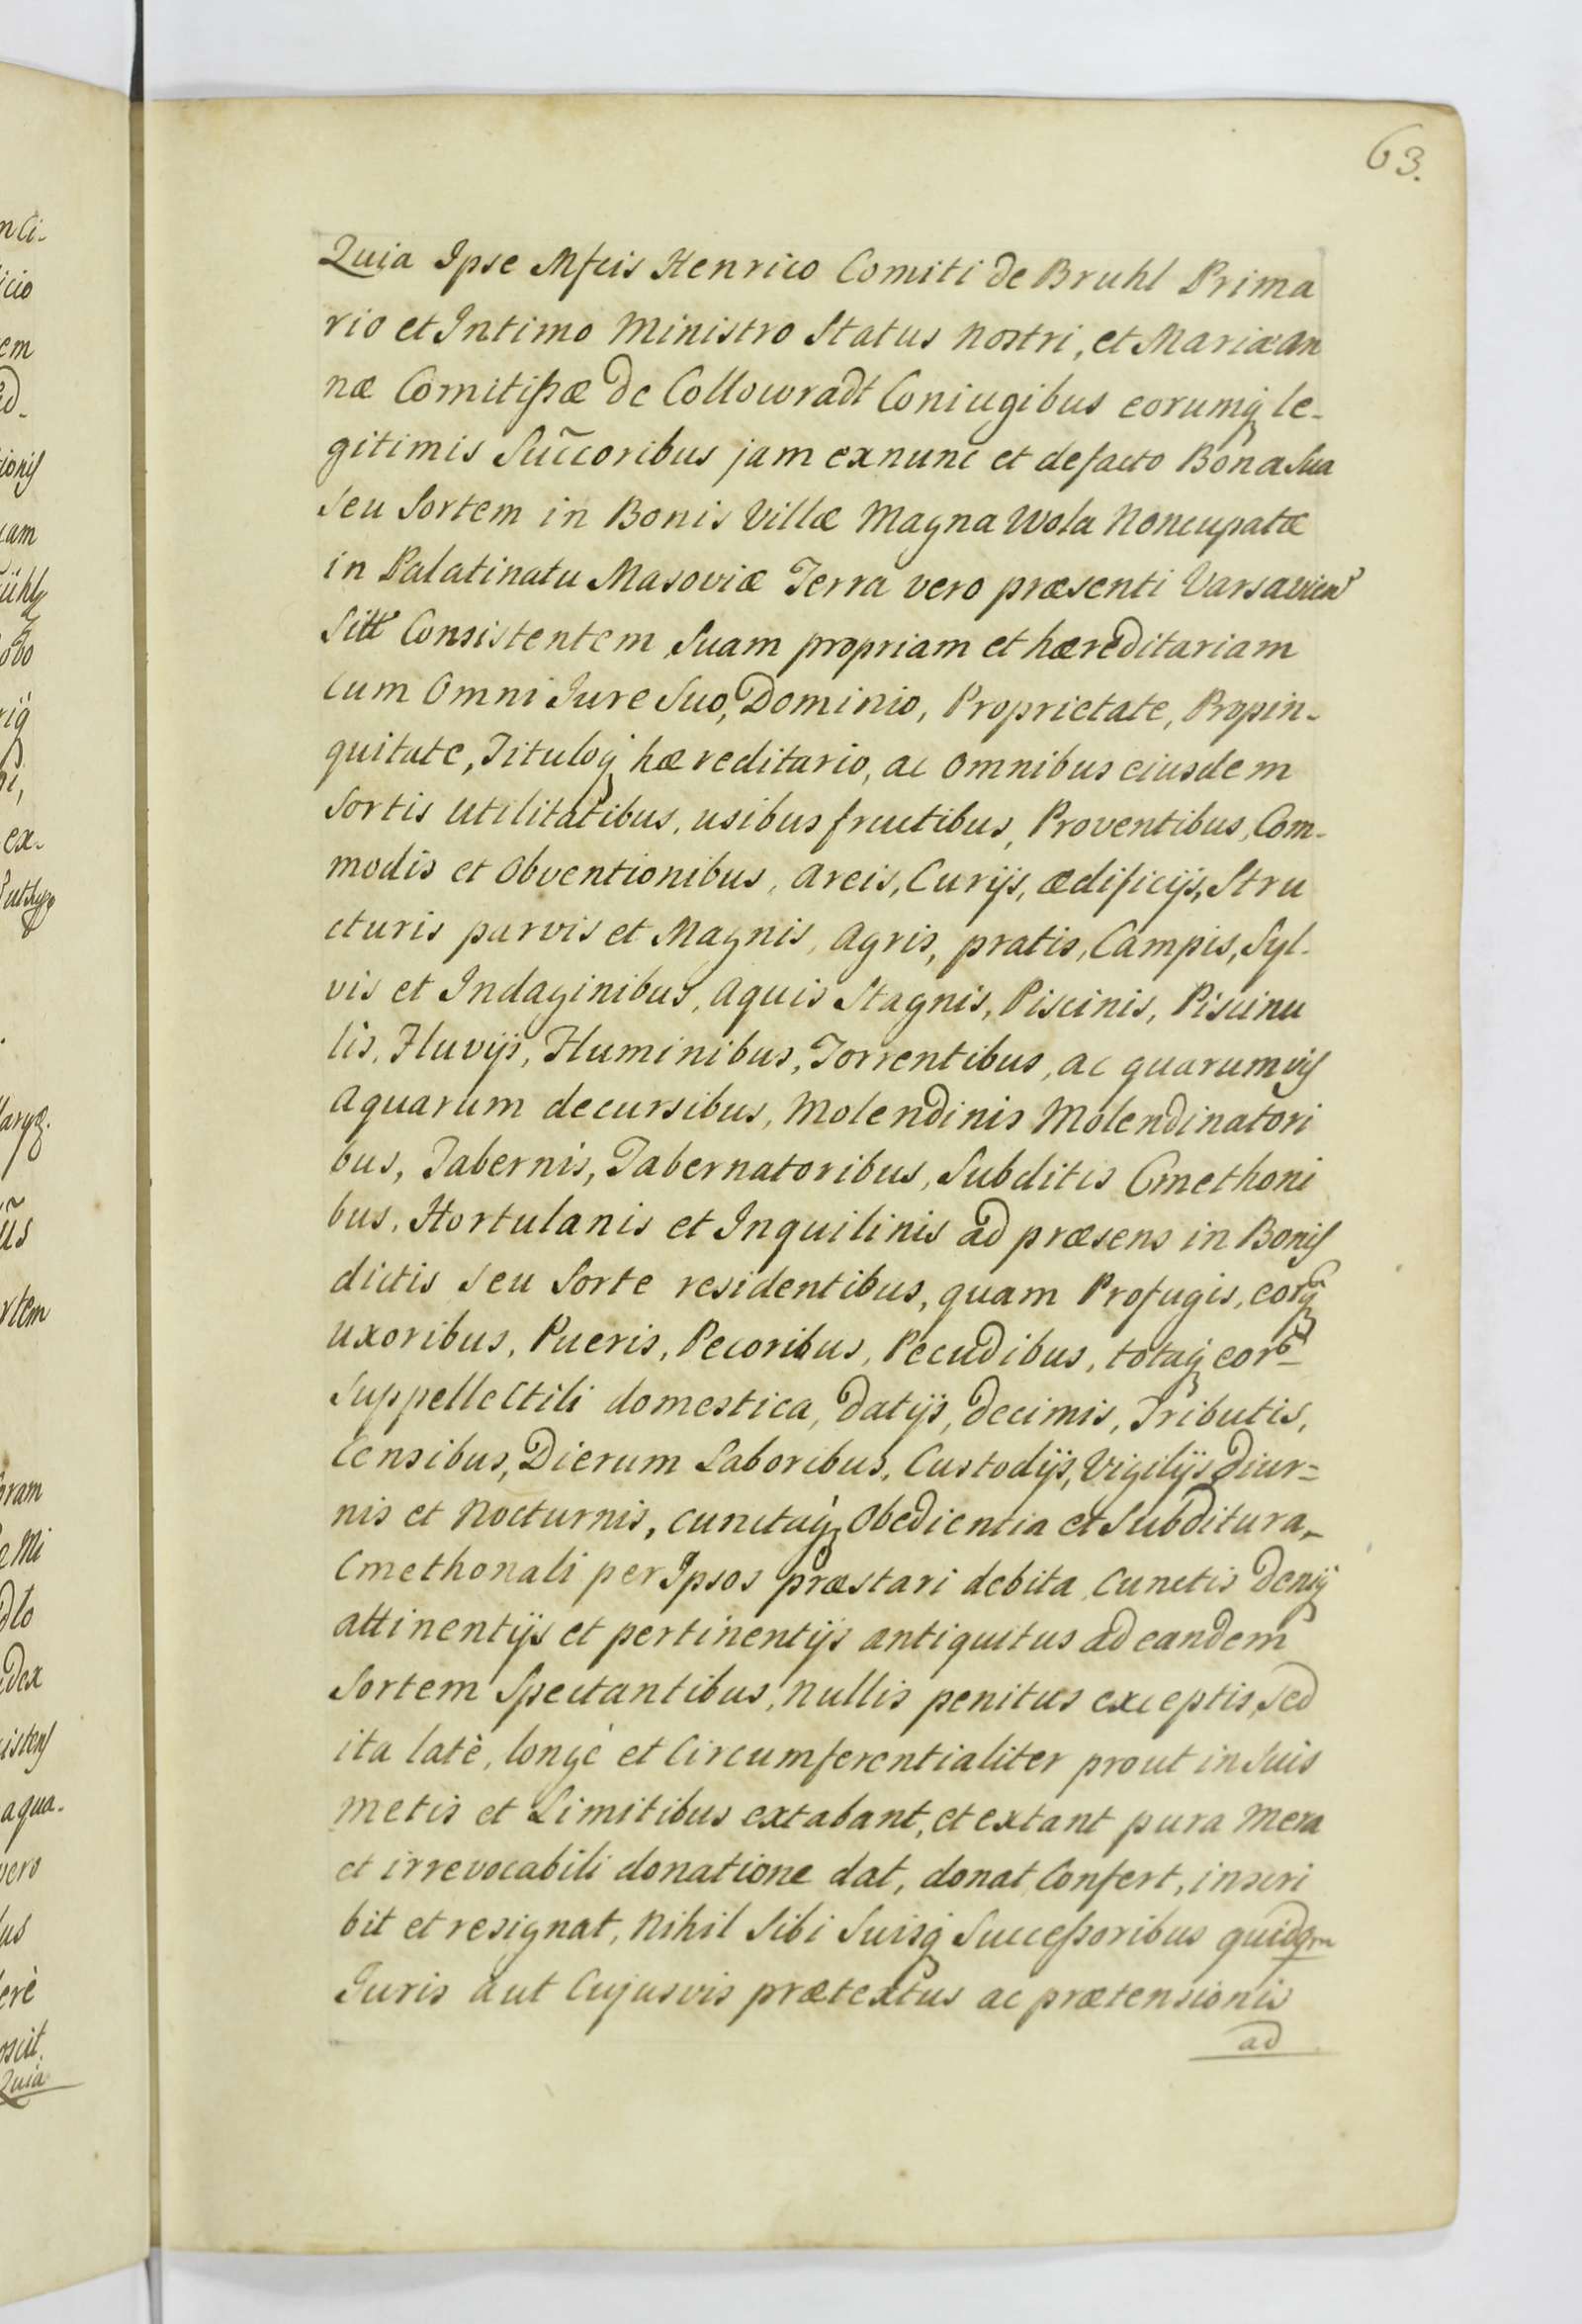 63.
Quia Ipse Mfcis Henrico Comiti de Bruhl Prima
rio et Intimo Ministro Status Nostri, et Mariæ an
næ Comitißæ de Collowradt Coniugibus eorumq́ le-
gitimis Succ̃oribus jam exnunc et defacto Bona Sua
Seu Sortem in Bonis Villæ Magna Wola Noncupatæ
in Palatinatu Masoviæ Terra vero præsenti Varsavien
Sitt Consistentem Suam propriam et hæreditariam
Cum Omni Jure Suo, Dominio, Proprietate, Propin-
quitate, Tituloq́ hæreditario, ac omnibus eiusdem
Sortis utilitatibus, usibus fructibus, Proventibus, Com-
modis et Obventionibus, areis, Curijs, ædificijs, Stru
cturis parvis et Magnis, Agris, pratis, Campis, Syl-
vis et Indaginibus, aquis Stagnis, Piscinis, Piscinu
lis, Fluvijs, Fluminibus, Torrentibus, ac quarumvis
aquarum decursibus, Molendinis Molendinatori
bus, Tabernis, Tabernatoribus, Subditis Cmethoni
bus, Hortulanis et Inquilinis ad præsens in Bonis
dictis seu Sorte residentibus, quam Profugis, eorq́
uxoribus, Pueris, Pecoribus, Pecudibus, totaq́ eor
Suppellectili domestica, datijs, decimis, Tributis,
Censibus, Dierum Laboribus, Custodijs, Vigilijs diur=
nis et Nocturnis, cunctaq́ Obedientia et Subditura
Cmethonali per Ipsos præstari debita, cunctis deniq́
attinentijs et pertinentijs antiquitus ad eandem
Sortem Spectantibus, nullis penitus exceptis, sed
ita latè, longè et Circumferentialiter prout in Suis
metis et Limitibus extabant, et extant pura Mera
et irrevocabili donatione dat, donat Confert, inscri
bit et resignat, Nihil Sibi Suisq́ Succeßoribus quidqm
Juris aut Cujusvis prætextus ac prætensionis
ad